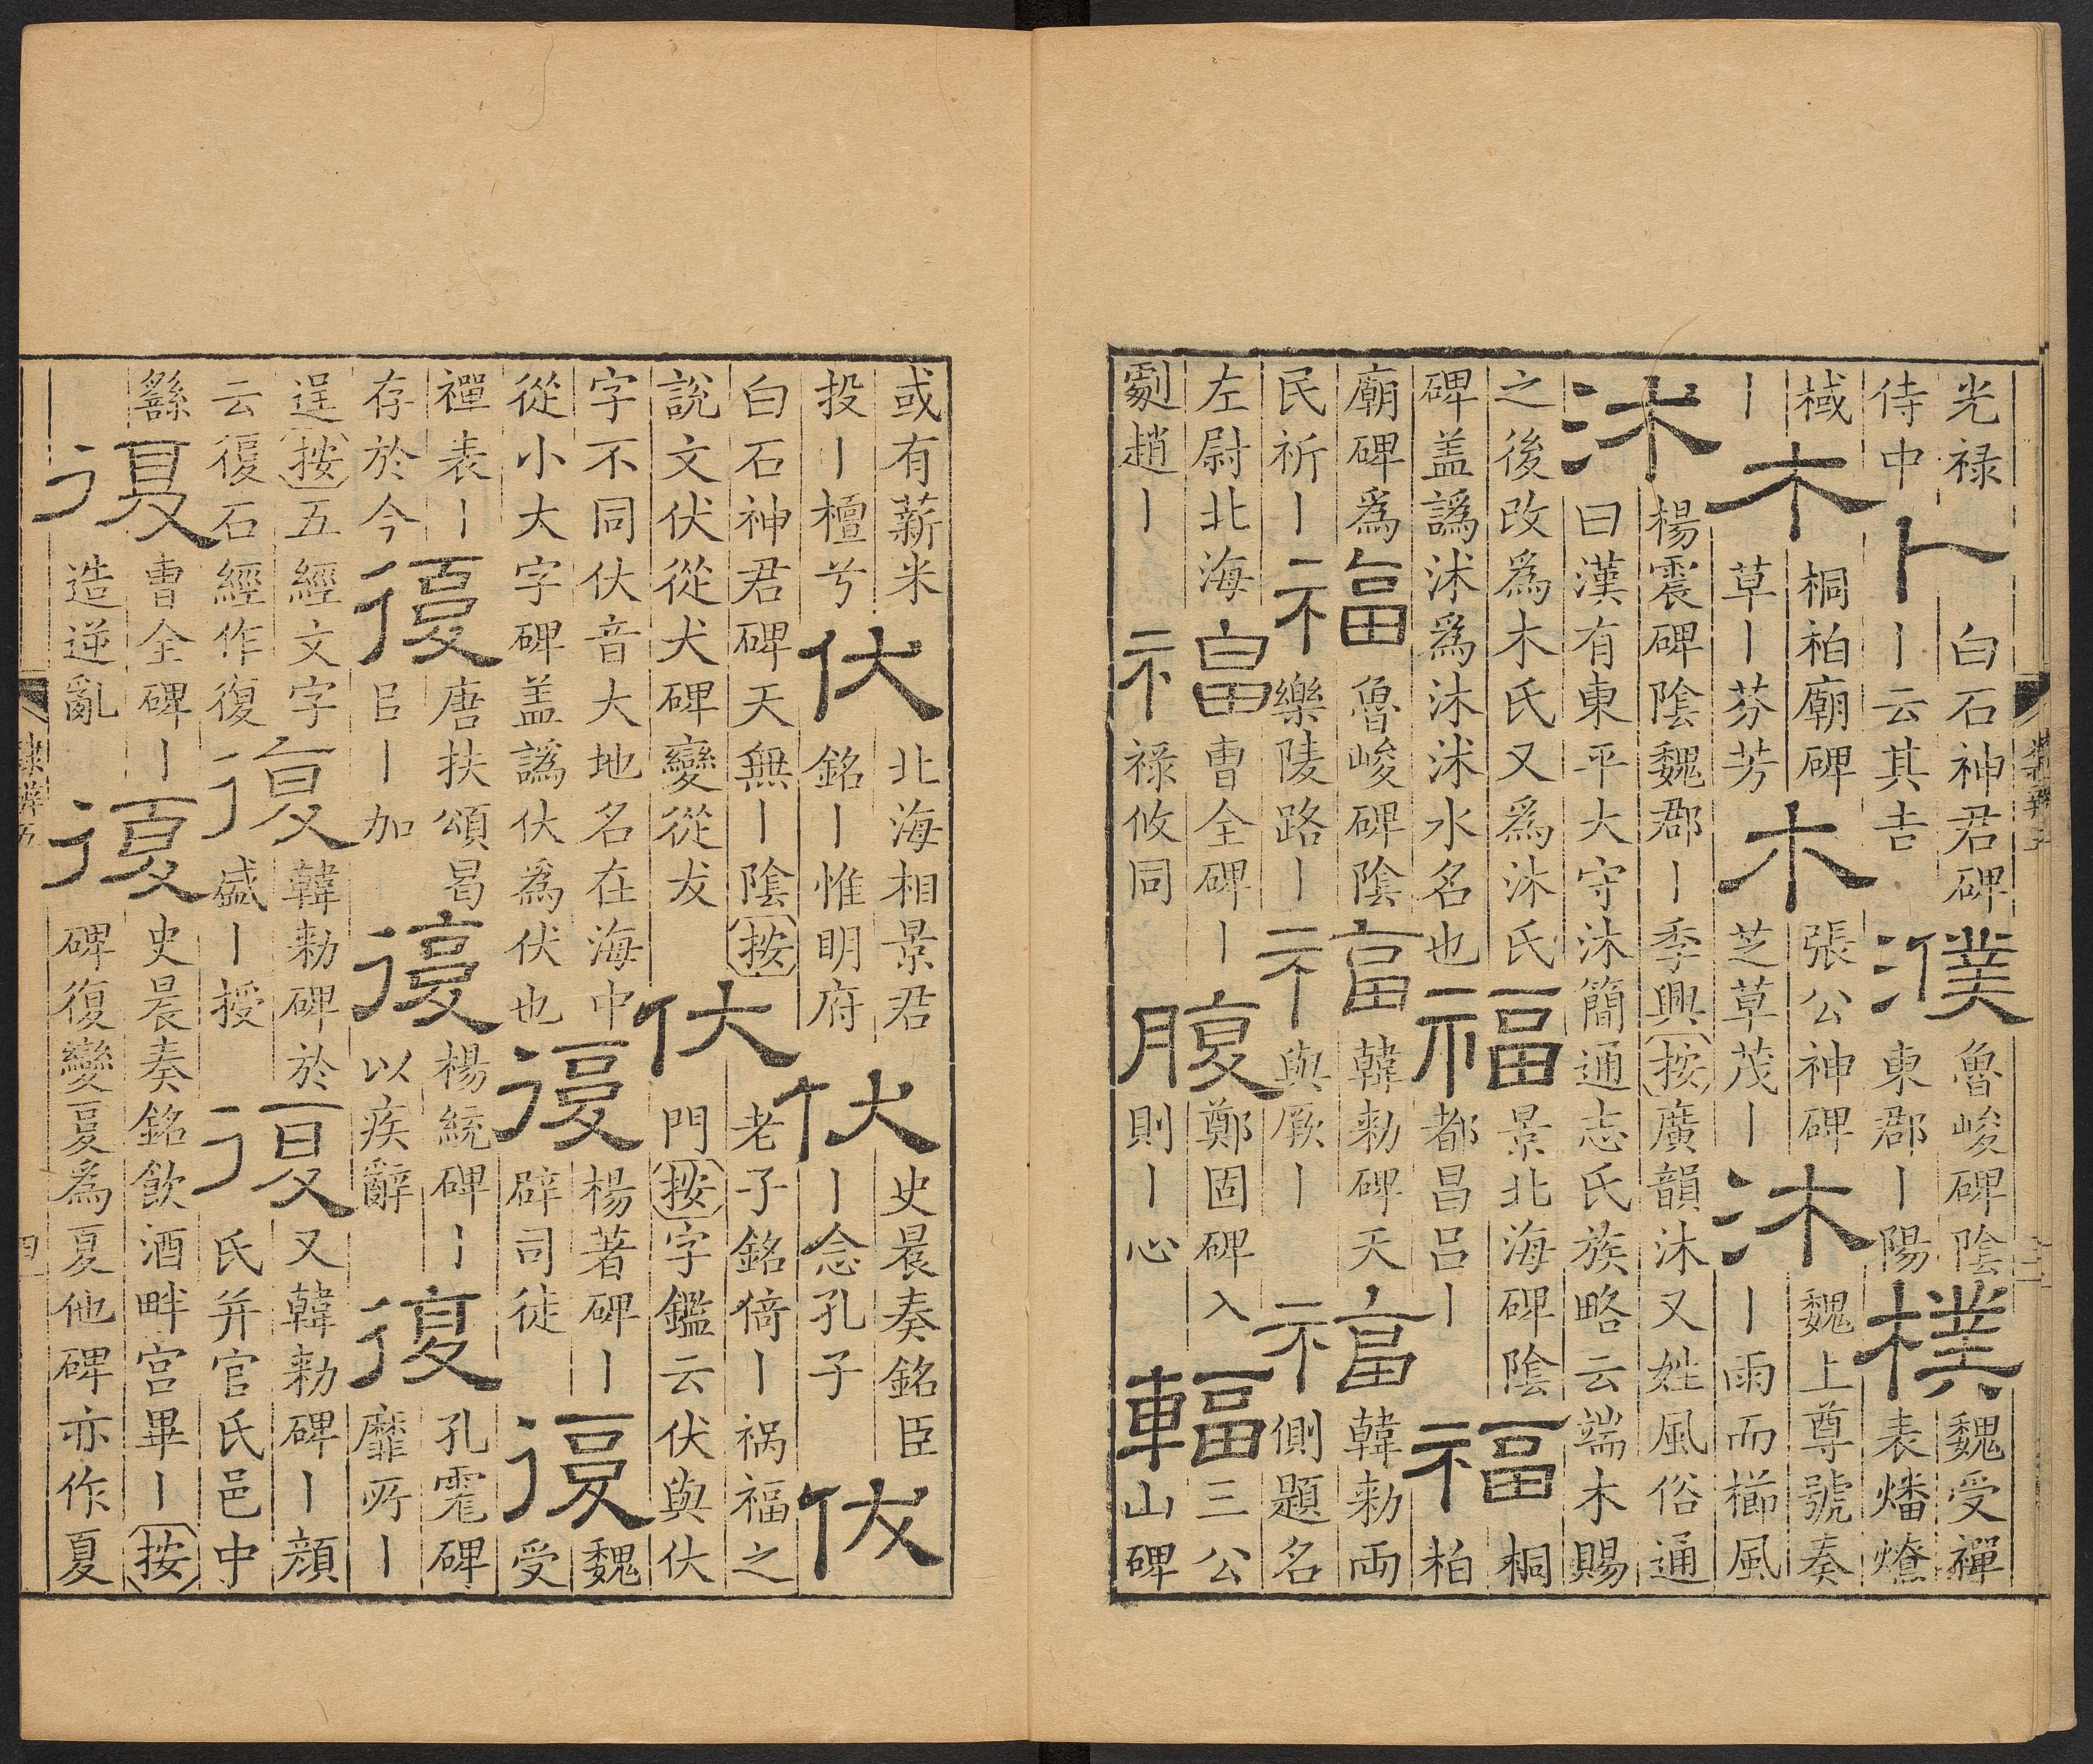 光禄卜白石神君碑濮魯峻碑陰樸魏受禪
侍中丨云其吉東郡丨陽表燔燎
棫木桐柏廟碑木張公神碑沐魏上尊號奏
丨草丨芬芳芝草茂丨丨雨而櫛風
沐楊震碑陰魏郡丨季興按廣韻沐又姓風俗通
曰漢有東平大守沐沐簡通志氏族略云端木賜
之後改爲木氏又爲沐氏福景北海碑陰福桐
碑盖譌沭爲沐沭水名也都昌吕丨柏
廟碑爲福魯峻碑陰福韓勑碑天福韓勑兩
民祈丨樂陵路丨與厥丨側題名
左尉北海福曹全碑丨腹鄭固碑入輻三公
劇趙丨禄攸同則丨心山碑
或有薪米㐲北海相景君㐲史晨奏銘臣伏
投丨檀兮銘丨惟明府丨念孔子
白石神君碑天無丨陰按㐲老子銘倚丨禍福之
說文伏從犬碑變從犮門按字鑑云伏與㐲
字不同㐲音大地名在海中復楊著碑丨復魏
從小大字碑盖譌㐲爲伏也辟司徒受
禪表丨復唐扶頌曷復楊統碑丨復孔碑
存於今㠯丨加以疾辭靡所丨
逞按五經文字復韓勑碑於復又韓勑碑丨顔
云復石經作復盛丨授氏并官氏邑中
繇復曹全碑丨復史晨奏銘飲酒畔宫畢丨按
造逆亂碑復變夐爲夏他碑亦作夏